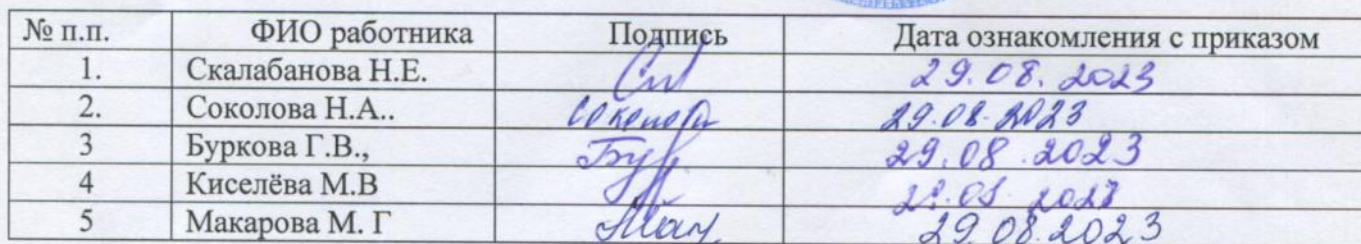 № п.п. ФИО работника Подпись Дата ознакомления с приказом
1. Скалабанова Н.Е. 29.08.2023
2. Соколова Н.А.. 29.08.2023
3 Буркова Г.В., Бур 29.08.2023
4 Киселёва М.В
5 Макарова М. Г Мак 29.08.2023